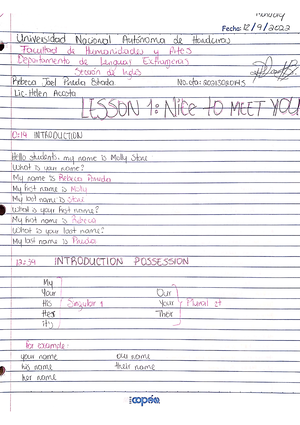 Monday
Fecha: 12/9/2023
Universidad Nacional Autónoma de Honduras
Facultad de Humanidades y Artes
Departamento de Lenguas Extranjeras
Sección de Inglés
Rebeca Joel Pineda
No. cta:
Lic. Helen Acosta
LESSON 1: Nice TO MEET YOU
0:14 INTRODUCTION
Hello students, my name is Molly Stone
What is your name?
My name is Rebeca Pineda
My first name is Molly
My last name is Stone
What is your first name?
My first name is Rebeca
What is your last name?
My last name is Pineda
12:54 INTRODUCTION POSSESSION
My
Your Our
His Singular 1 Your Plural 2+
Her Their
Its
for example:
your name our name
his name their name
her name
copán